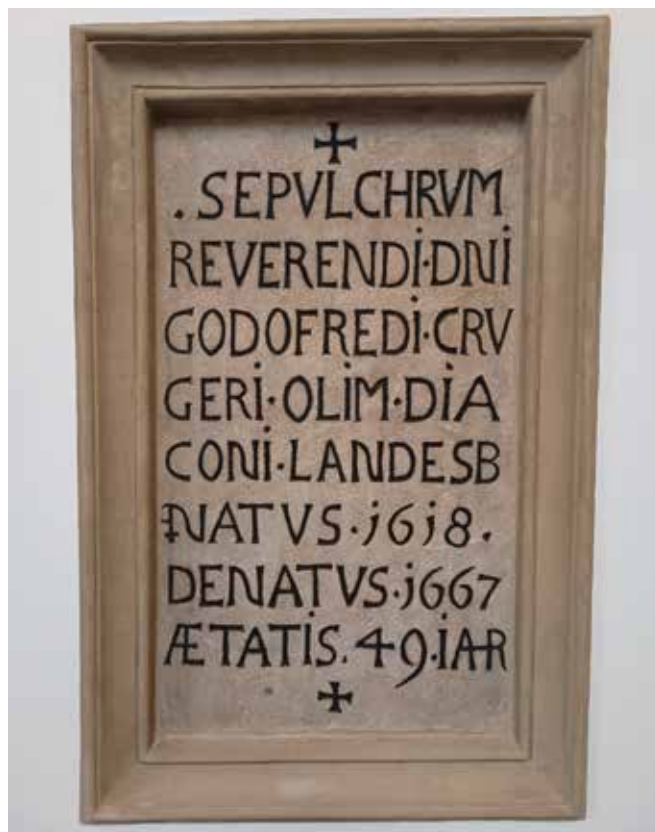 .SEPVLCHRVM
REVERENDI·DNI
GODOFREDI·CRV
GERI·OLIM·DIA
CONI·LANDESB
NATVS·j6j8.
DENATVS·j667
ÆTATIS.49.IAR